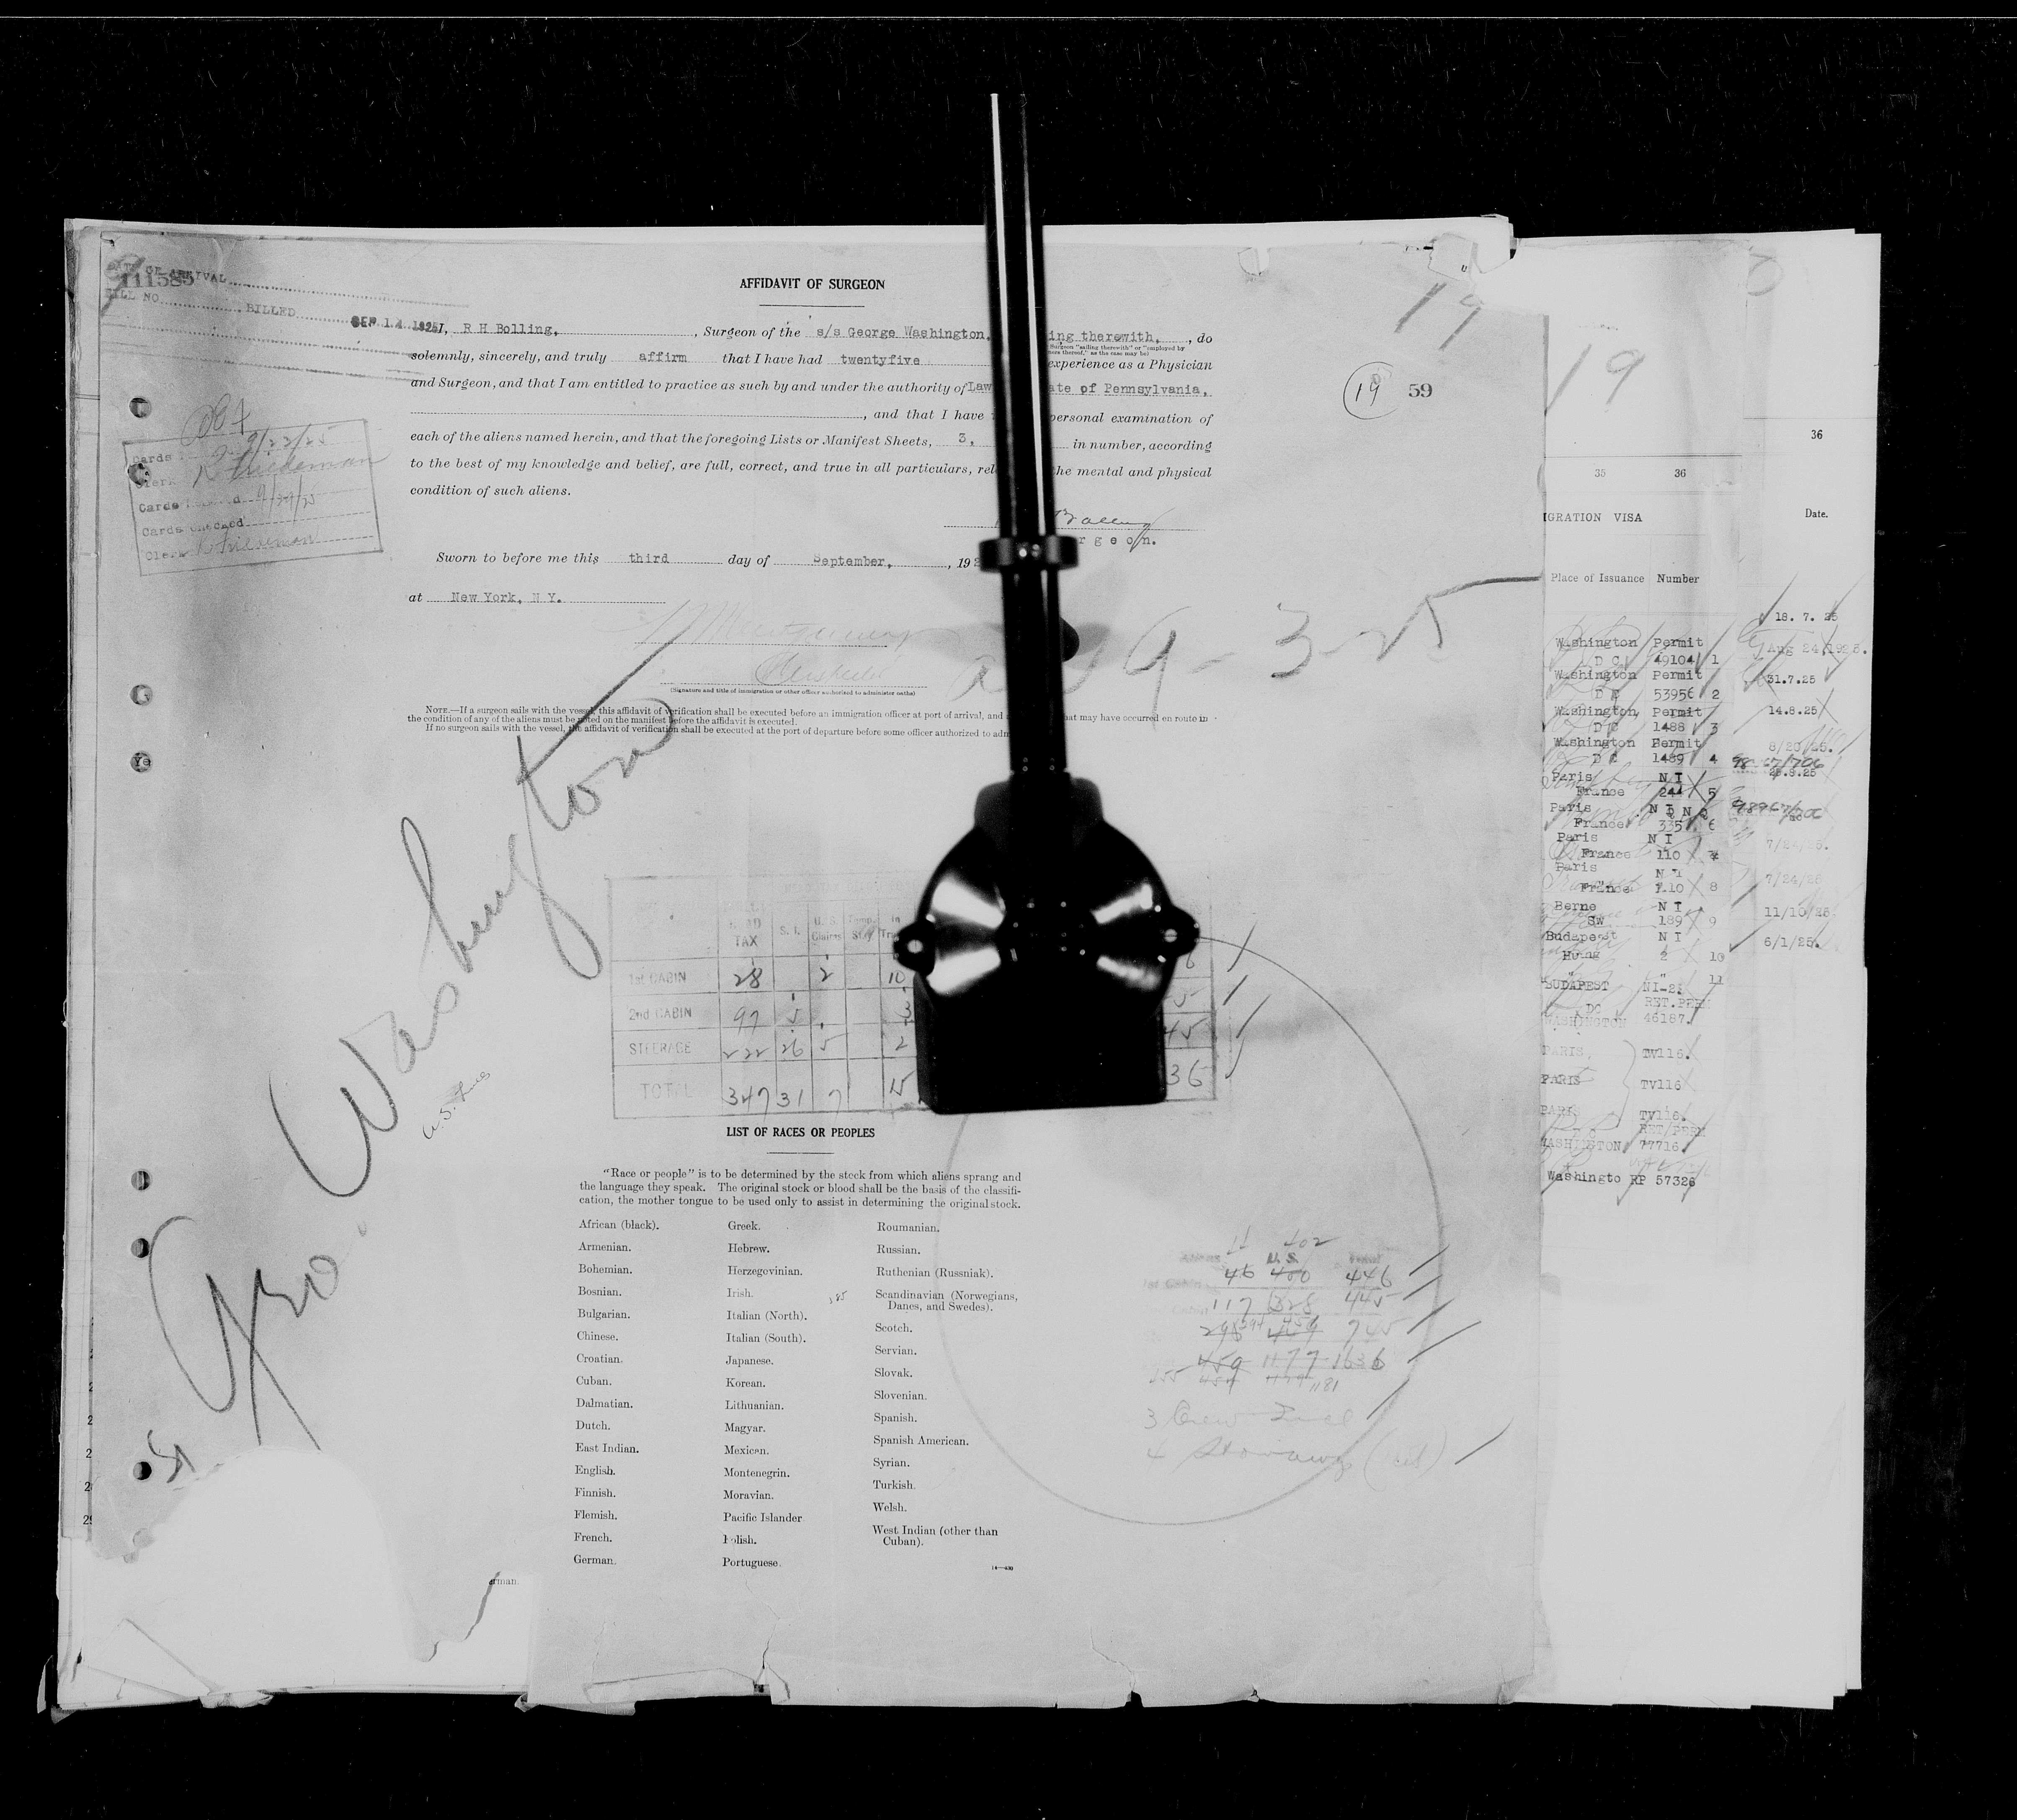 DATE OF ARRIVAL
111585
BILL NO. BILLED SEP 14 1925
AFFIDAVIT OF SURGEON
19
I, R H Bolling, , Surgeon of the s/s George Washington, ing therewith, , do
solemnly, sincerely, and truly affirm that I have had twentyfive experience as a Physician
and Surgeon, and that I am entitled to practice as such by and under the authority of Law ate of Pennsylvania,
, and that I have personal examination of
each of the aliens named herein, and that the foregoing Lists or Manifest Sheets, 3, in number, according
to the best of my knowledge and belief, are full, correct, and true in all particulars, rel he mental and physical
condition of such aliens.
19 59
Cards 9/22/25
Clerk
Cards 9/24/25
Cards checked
Clerk
Bolling
rgeon.
Sworn to before me this third day of September, , 192
at New York, N Y.
9-3-25
(Signature and title of immigration or other officer authorized to administer oaths)
NOTE.—If a surgeon sails with the vessel, this affidavit of verification shall be executed before an immigration officer at port of arrival, and hat may have occurred en route in
the condition of any of the aliens must be noted on the manifest before the affidavit is executed.
If no surgeon sails with the vessel, the affidavit of verification shall be executed at the port of departure before some officer authorized to adm
Geo. Washington
U.S. Lines
HEAD TAX S. I. U. S. Claims Temp. Stay In Tra
1st CABIN 28 2 10 6
2nd CABIN 97 5 3 5
STEERAGE 222 26 5 2 45
TOTAL 347 31 7 15 36
LIST OF RACES OR PEOPLES
"Race or people" is to be determined by the stock from which aliens sprang and
the language they speak. The original stock or blood shall be the basis of the classifi-
cation, the mother tongue to be used only to assist in determining the original stock.
African (black).
Armenian.
Bohemian.
Bosnian.
Bulgarian.
Chinese.
Croatian.
Cuban.
Dalmatian.
Dutch.
East Indian.
English.
Finnish.
Flemish.
French.
German.
Greek.
Hebrew.
Herzegovinian.
Irish.
Italian (North).
Italian (South).
Japanese.
Korean.
Lithuanian.
Magyar.
Mexican.
Montenegrin.
Moravian.
Pacific Islander
Polish.
Portuguese.
Roumanian.
Russian.
Ruthenian (Russniak).
Scandinavian (Norwegians,
Danes, and Swedes).
Scotch.
Servian.
Slovak.
Slovenian.
Spanish.
Spanish American.
Syrian.
Turkish.
Welsh.
West Indian (other than
Cuban).
erman.
402
Aliens U.S. Total
1st Cabin 46 400 446
117 328 445
745
459 1177 1636
1181
3 Crew
4 Stowaways
19
35 36
IGRATION VISA
Place of Issuance Number
Washington Permit
D C 49104 1
Washington Permit
D C 53956 2
Washington Permit
D C 1488 3
Washington Permit
D C 1489 4
Paris N I
France 244 5
Paris N I
France 335 6
Paris N I
France 110
Paris N I
France 110 8
Berne N I
Sw 189 9
Budapest N I
Hung 2 10
BUDAPEST NI-2 11
DC RET.PERM
WASHINGTON 46187
PARIS, TV116
PARIS TV116
PARIS TV116.
RET/PERM
WASHINGTON 77716
Washingto RP 57326
36
Date.
18. 7. 25
Aug 24,1925.
31.7.25
14.8.25
8/20/25.
7/24/25.
7/24/25
11/10/25
6/1/25.